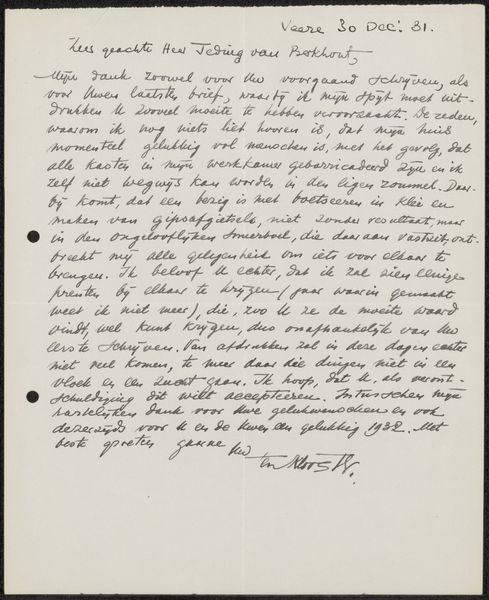 Veere 30 Dec. 31.
Zeer geachte Heer Teding van Berkhout,
Mijn dank zoowel voor Uw voorgaand schrijven, als
voor Uwen laatsten brief, waarbij ik mijn spijt moet uit-
drukken U zooveel moeite te hebben veroorzaakt. De reden,
waarom ik nog niets liet hooren is, dat mijn huis
momenteel gelukkig vol menschen is, met het gevolg, dat
alle kasten in mijn werkkamer gebarricadeerd zijn en ik
zelf niet wegwijs kan worden in den eigen rommel. Daar-
bij komt, dat ik bezig is met boetseeren in klei en
maken van gipsafgietsels, niet zonder resultaat, maar
in den ongelooflijken smeerboel, die daar aan vastzit, ont-
breekt mij alle gelegenheid om iets voor elkaar te
brengen. Ik beloof U echter, dat ik zal zien eenige
prenten bij elkaar te krijgen (jaar waarin gemaakt
weet ik niet meer), die, zoo U ze de moeite waard
vindt, wel kunt krijgen, dus onafhankelijk van Uw
eerste schrijven. Van afdrukken zal in deze dagen echter
niet veel komen, te meer daar die dingen niet in een
vloek en een zucht gaan. Ik hoop, dat U, als veront-
schuldiging dit wilt accepteeren. Intusschen mijn
hartelijken dank voor Uwe gelukwenschen en ook
dezerzijds voor U en de Uwen een gelukkig 1932. Met
beste groeten gaarne Uw